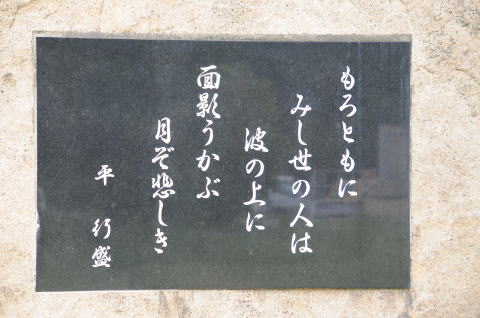 もろともに
みし世の人は
波の上に
面影うかぶ
月ぞ悲しき
平 行盛